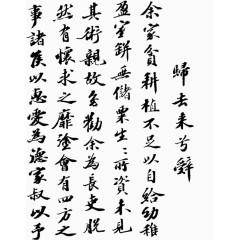 歸去来兮辭
余家貧耕植不足以自給幼稚
盈室缾無儲粟生々所資未見
其術親故多勸余為長吏脫
然有懷求之靡塗會有四方之
事諸侯以惠愛為德家叔以予